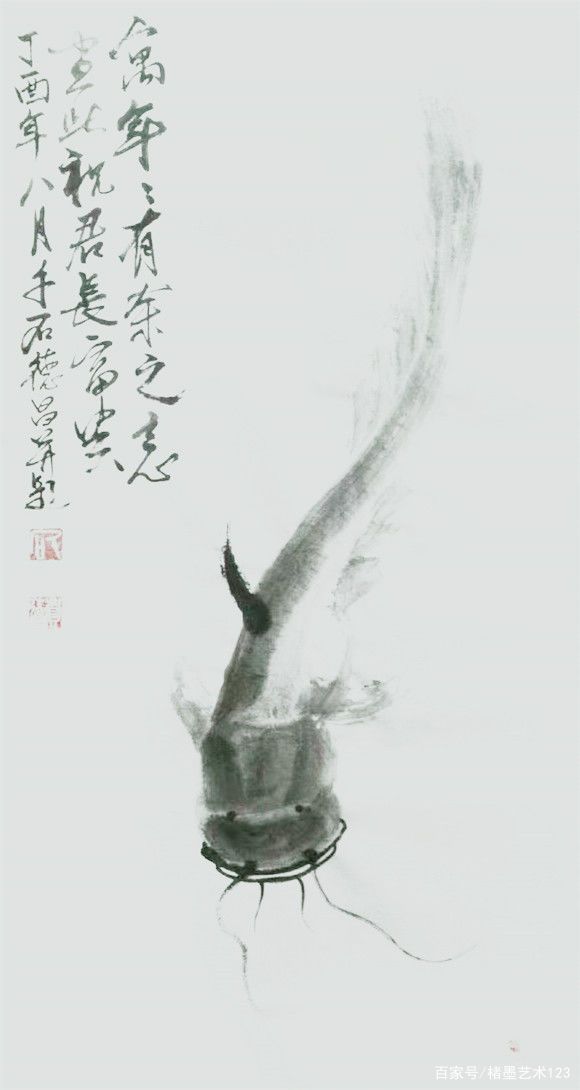 寓年〻有余之意
画此祝君长富贵
丁酉年八月千石德昌并题
百家号/楮墨艺术123